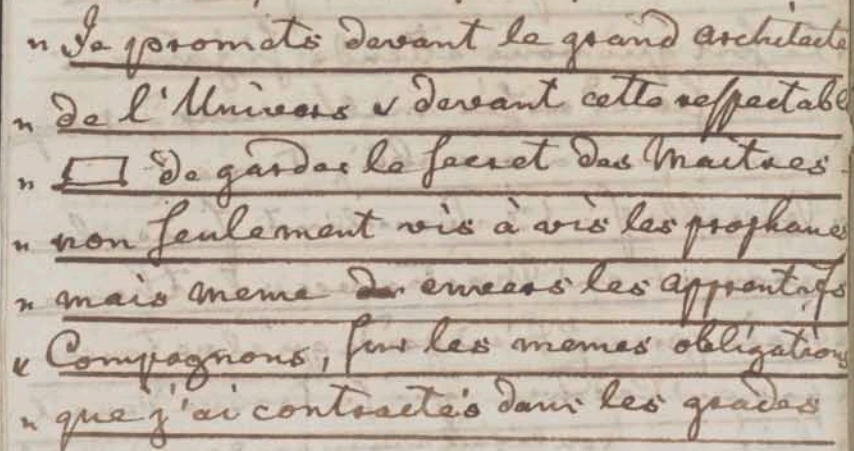 " Je promets devant le grand architecte
" de l'Univers & devant cette respectable
" ▭ de garder le secret des Maitres
" non seulement vis à vis les prophanes
" mais meme de envers les apprentifs
" Compagnons, sur les memes obligations
" que j'ai contractés dans les grades